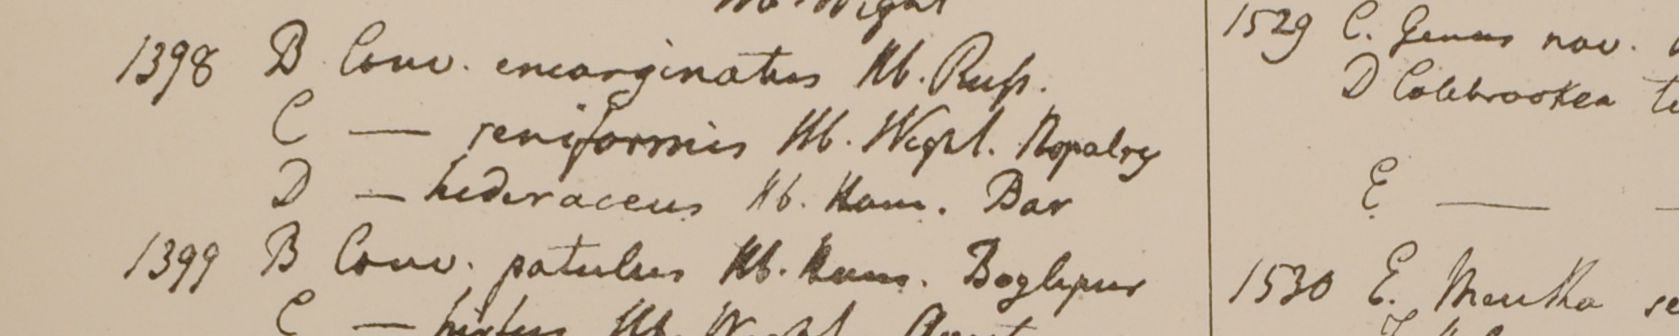 Hb. Wight
1398 B Conv. emarginatus Hb. Russ.
C — reniformis Hb. Wight. Nopalry
D — hederaceus Hb. Ham. Bar
1399 B Conv. patulus Hb. Ham. Boglipur
C — hirtus Hb. Wight.
1529 C. Genus nov.
D Colebrookea
E —
1530 E. Mentha